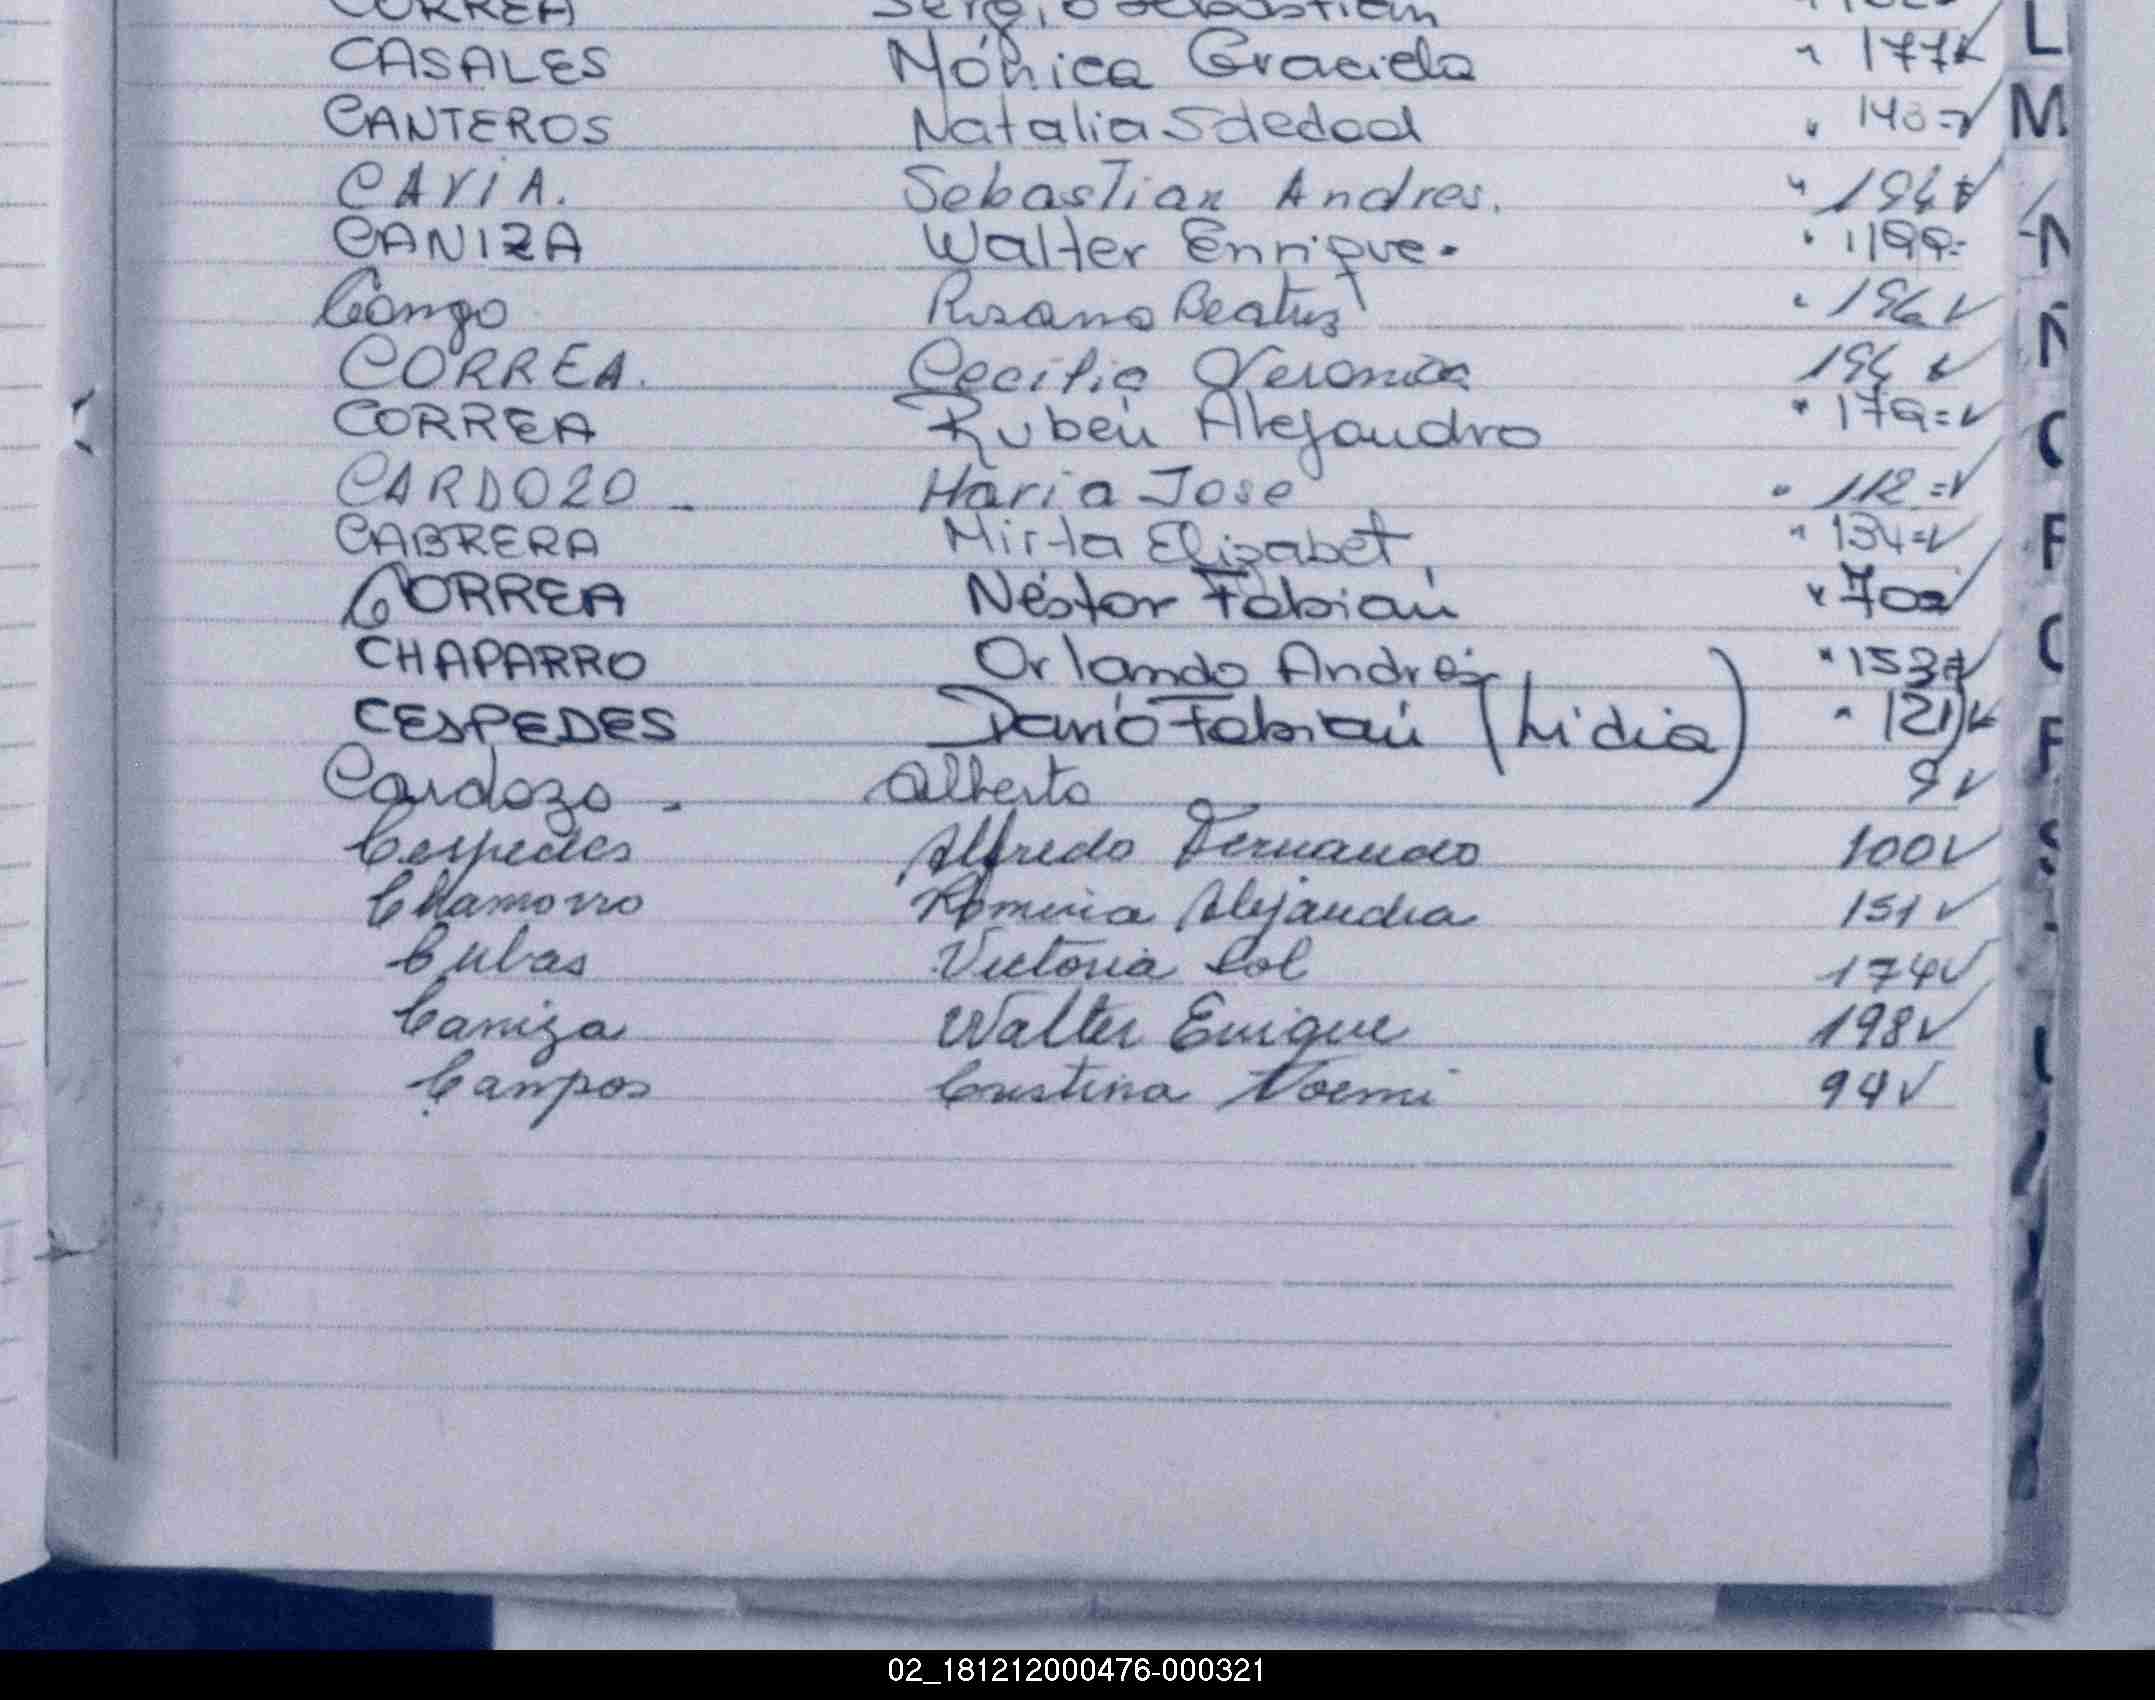 CORREA Sergio Sebastian
CASALES Mónica Graciela " 177 ✓
CANTEROS Natalia Soledad " 140=✓
CAVIA. Sebastian Andres. " 194=✓
CANIZA Walter Enrique. " 199=
Congo Rosana Beatriz " 196 ✓
CORREA. Cecilia Veronica 194 ✓
CORREA Rubén Alejandro " 179=✓
CARDOZO - Maria Jose " 112=✓
CABRERA Mirta Elizabet " 134=✓
CORREA Néstor Fabián " 70=✓
CHAPARRO Orlando Andrés " 153=✓
CESPEDES Darío Fabián (Lidia) " 121 ✓
Cardozo - Alberto 9 ✓
Cespedes Alfredo Fernando 100 ✓
Chamorro Romina Alejandra 151 ✓
Cubas Victoria Sol 174 ✓
Caniza Walter Enrique 198 ✓
Campos Cristina Noemi 94 ✓
L
M
N
Ñ
02_181212000476-000321